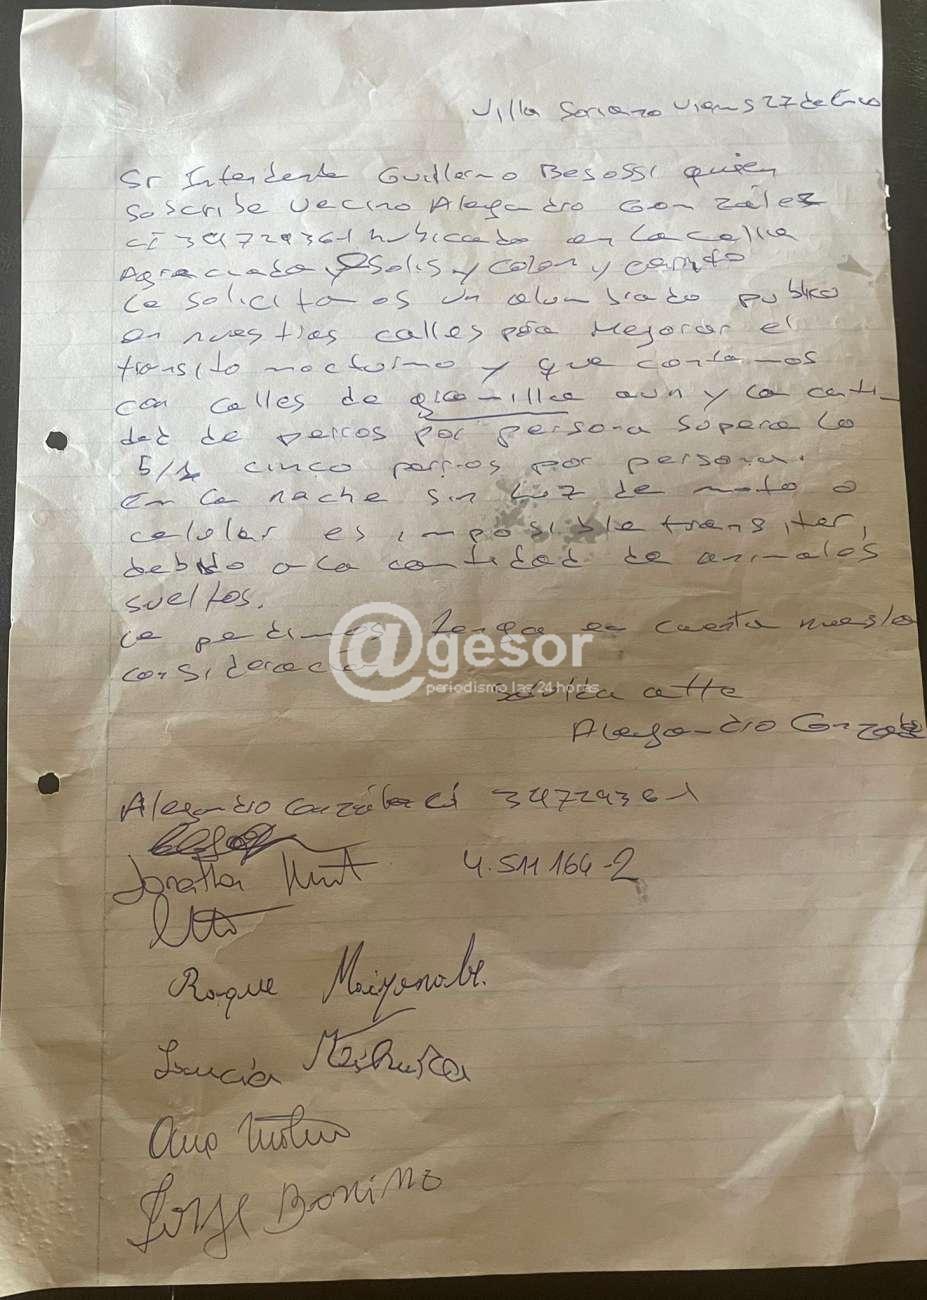 Villa Soriano Viernes 27 de Enero
Sr Intendente Guillermo Besossi quien
soscribe vecino Alejandro Gonzáles
CI 34729361 hubicado en la calle
Agraciada, Solis y Colon y
Le solicitamos un alumbrado publico
en nuestras calles para mejorar el
transito nocturno y que contamos
con calles de gramilla aun y la canti-
dad de perros por persona supera lo
5/1 cinco perros por persona.
En la noche sin luz de moto o
celular es imposible transiter,
debido a la cantidad de animales
sueltos.
Le pedimos tenga en cuenta nuestra
consideració
@gesor
periodismo las 24 horas
saluda atte
Alejandro Gonzales
Alejandro Gonzáles ci 34729361
Jonathan 4.511.164-2
Roque
Lucía
Ana
Jorge Bonino